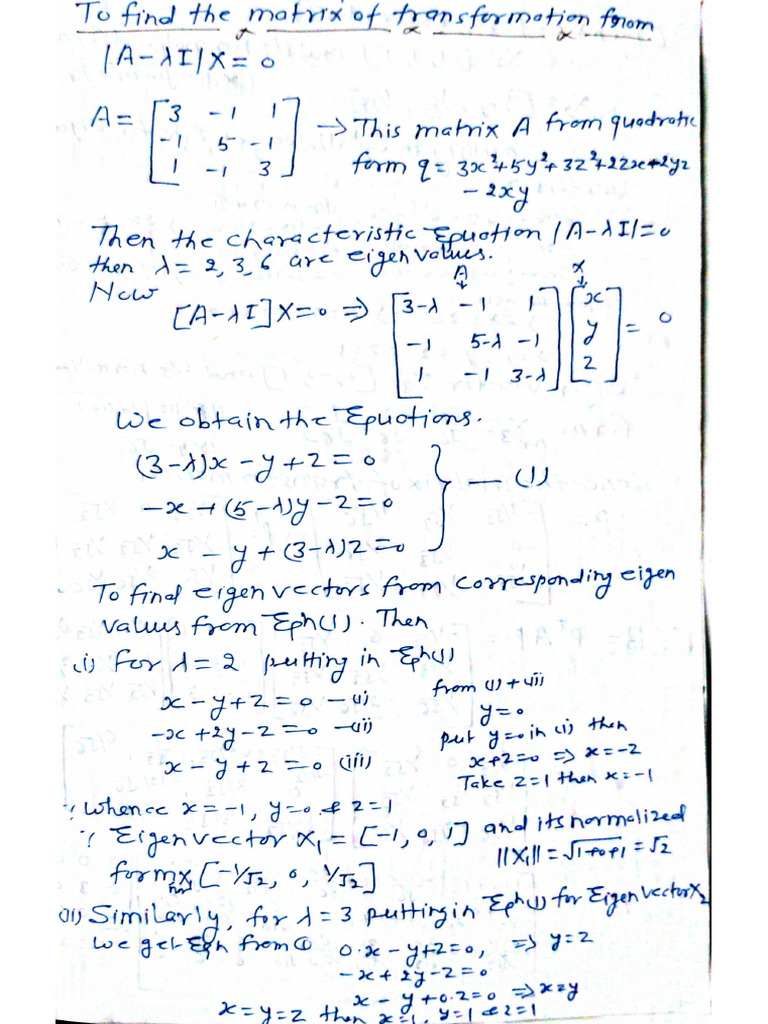 To find the matrix of transformation from
|A-λI|X=0
A= [3 -1 1
-1 5 -1
1 -1 3] → This matrix A from quadratic
form q= 3x²+5y²+3z²+2zx+2yz
-2xy
Then the characteristic Equation |A-λI|=0
then λ= 2,3,6 are eigen values.
Now
[A-λI]X=0 ⇒ A↓ [3-λ -1 1
-1 5-λ -1
1 -1 3-λ] X↓ [x
y
z] = 0
We obtain the Equations.
(3-λ)x -y+z=0
-x+(5-λ)y-z=0 } —(1)
x -y+(3-λ)z=0
To find eigen vectors from corresponding eigen
values from Eqn(1). Then
(i) for λ=2 putting in Eqn(1)
x-y+z=0 -(i)
-x+2y-z=0 -(ii)
x-y+z=0 (iii)
from (i)+(ii)
y=0
put y=0 in (i) then
x+z=0 ⇒ x=-z
Take z=1 then x=-1
∵ Whence x=-1, y=0 & z=1
∵ Eigen vector X₁=[-1,0,1] and its normalized
||X₁||=√1+0+1=√2
form [-1/√2, 0, 1/√2]
(ii) Similarly, for λ=3 putting in Eqn(1) for Eigen Vector X₂
we get Eqn from ① 0.x-y+z=0, ⇒ y=z
-x+2y-z=0
x-y+0.z=0 ⇒ x=y
x=y=z then x=1, y=1 & z=1